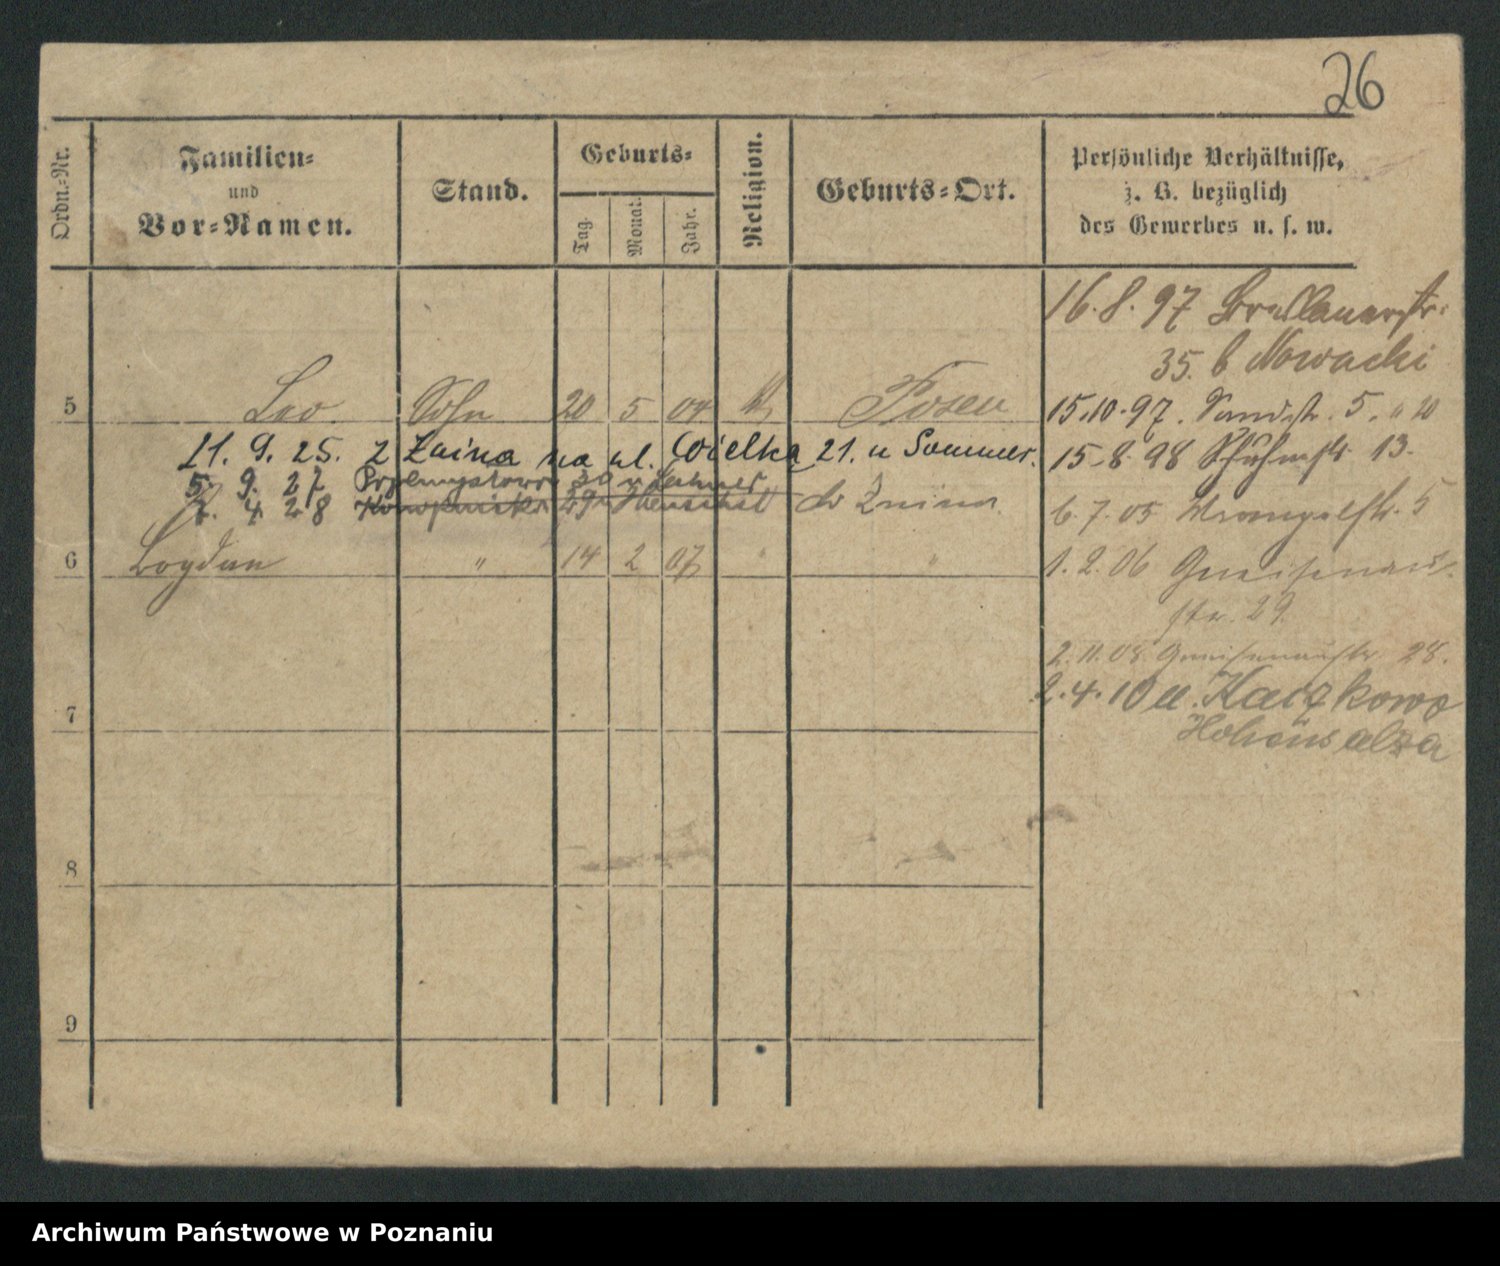 26
Ordn.-Nr.
Familien-
und
Vor-Namen.
Stand.
Geburts-
Tag.
Monat.
Jahr.
Religion.
Geburts-Ort.
Persönliche Verhältnisse,
z. B. bezüglich
des Gewerbes u. s. w.
16.8.97
35. b Nowacki
5 Leo Sohn 20 5 04 Posen
15.10.97. 5.
21. 9. 25. z Żnina na ul. Wielka 21. u Sommer.
15.8.98 13.
5. 9. 27 30 u
4 28 29 do Żnina
6.7.05 Wrangelstr. 5
6 Bogdan " 14 2 07 " "
1.2.06 Gneisenau-
str. 29.
2.11.08 Gneisenaustr 28.
2.4.10 Kaczkowo
Hohensalza
7
8
9
Archiwum Państwowe w Poznaniu